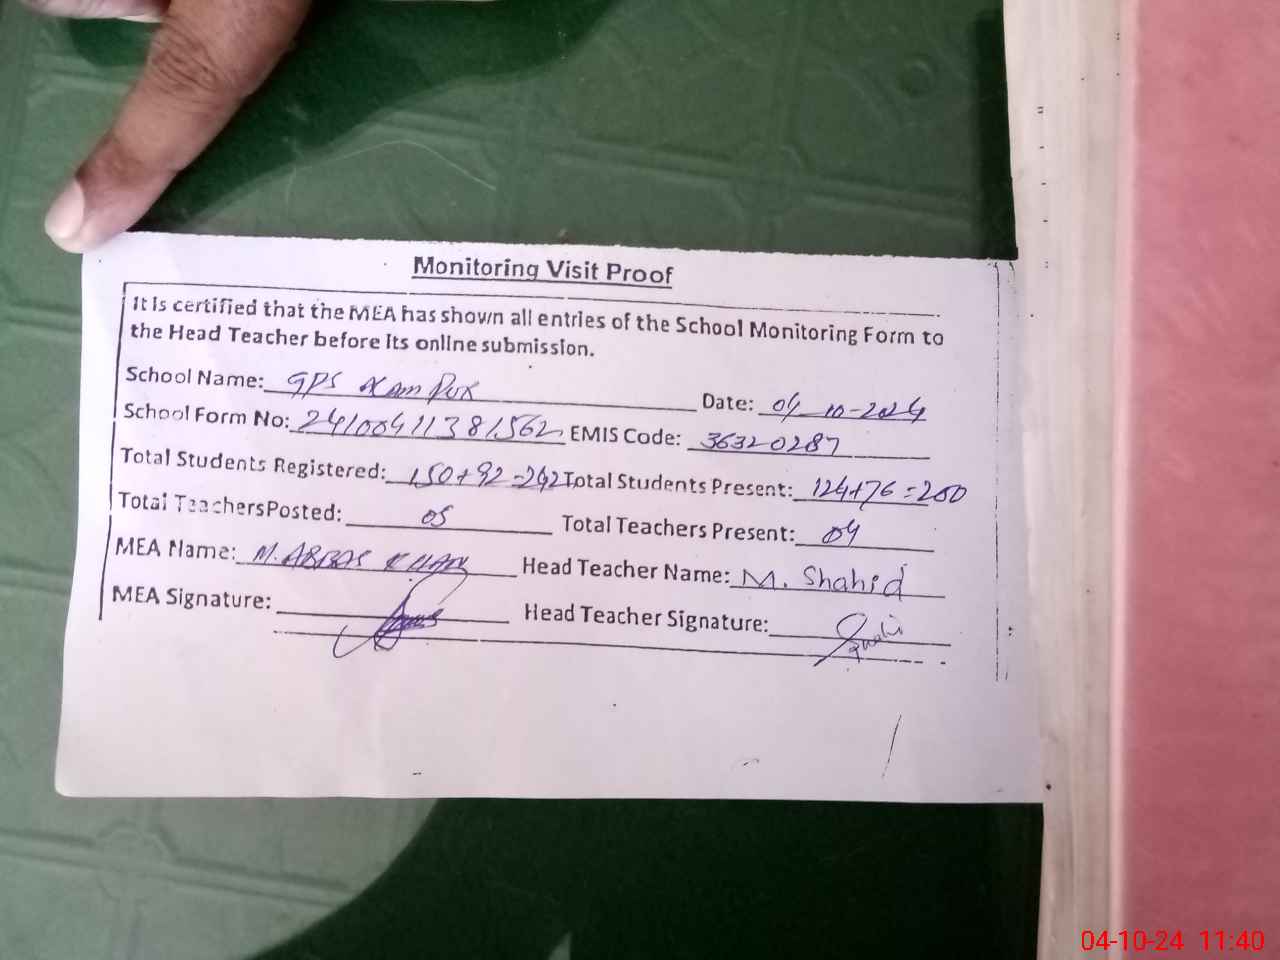 Monitoring Visit Proof
It is certified that the MEA has shown all entries of the School Monitoring Form to
the Head Teacher before its online submission.
School Name: GPS Date: 04-10-2024
School Form No: 24100411381562 EMIS Code: 36320287
Total Students Registered: 150+92=242 Total Students Present: 124+76=200
Total Teachers Posted: 05 Total Teachers Present: 04
MEA Name: M. ABBAS KHAN Head Teacher Name: M. Shahid
MEA Signature: Head Teacher Signature:
04-10-24 11:40